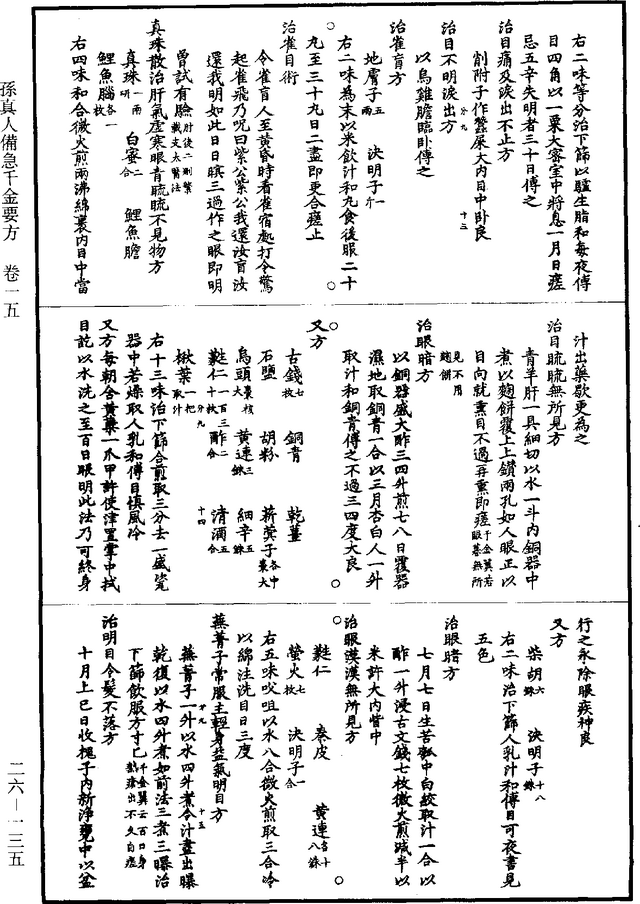 孫真人備急千金要方　卷一五
二六—一三五
右二味等分治下篩以驢生脂和每夜傅
目四角以一粟大密室中將息一月日瘥
忌五辛失明者三十日傅之
治目痛及淚出不止方
削附子作蠶屎大內目中臥良
治目不明淚出方
以烏雞膽臨臥傅之
治雀盲方
地膚子五兩　決明子一斤
右二味為末以米飲汁和丸食後服二十
九至三十九日二盡即更合瘥止
治雀目術
令雀盲人至黃昏時看雀宿處打令驚
起雀飛乃呪曰紫公紫公我還汝盲汝
還我明如此日日暝三過作之眼即明
曾試有驗
真珠散治肝氣虛寒眼青䀮䀮不見物方
真珠一兩研　白蜜二合　鯉魚膽
鯉魚腦各一枚
右四味和合微火煎兩沸綿裹內目中當
汁出藥歇更為之
治目䀮䀮無所見方
青羊肝一具細切以水一斗內銅器中
煮以麴餅覆上上鑽兩孔如人眼正以
目向就熏目不過再熏即瘥千金翼若眼暮無所見不用麴餅
治眼暗方
以銅器盛大酢三四升煎七八日覆器
濕地取銅青一合以三月杏白人一升
取汁和銅青傅之不過三四度大良
又方
古錢七枚　銅青　乾薑
石鹽　胡粉　蕤蕤子各中棗大
烏頭棗核大　黃連三銖　細辛五銖
蕤仁一百三十枚　酢二合　清酒五合
楸葉一把取汁
右十三味治下篩合煎取三分去一盛瓷
器中若燥取人乳和傅目慎風冷
又方每朝含黃蘗一爪甲許使津置掌中拭
目訖以水洗之至百日眼明此法乃可終身
行之永除眼疾神良
又方
柴胡六銖　決明子十八銖
右二味治下篩人乳汁和傅目可夜書見
五色
治眼暗方
七月七日生苦瓠中白絞取汁一合以
酢一升浸古文錢七枚微火煎減半以
米許大內眥中
治眼漠漠無所見方
蕤仁　秦皮　黃連各十八銖
螢火七枚　決明子一合
右五味㕮咀以水八合微火煎取三合冷
以綿注洗目日三度
蕪菁子常服主輕身益氣明目方
蕪菁子一升以水四升煮令汁盡出曝
乾復以水四升煮如前法三煮三曝治
下篩飲服方寸匕千金翼云百日身熱瘡出不久自瘥
治明目令髮不落方
十月上巳日收槐子內新淨甕中以盆